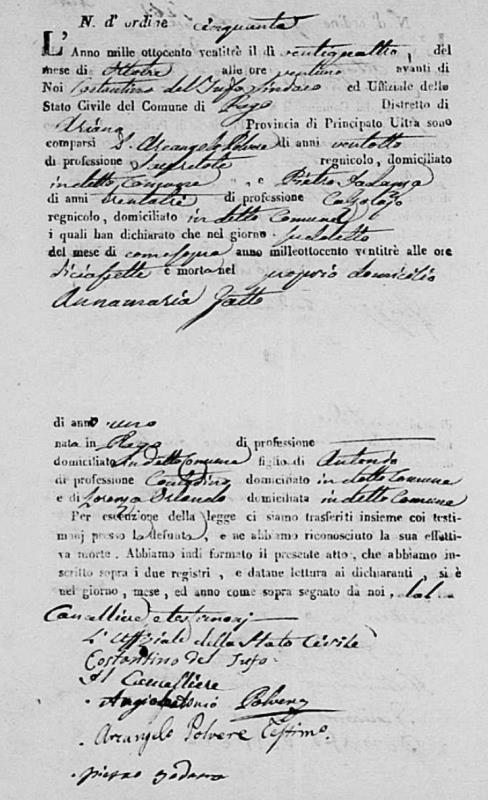 N. d'ordine cinquanta
L'Anno mille ottocento ventitrè il dì ventiquattro del
mese di Ottobre alle ore ventuno avanti di
Noi Costantino del Tufo Sindaco ed Uffiziale dello
Stato Civile del Comune di Distretto di
Ariano Provincia di Principato Ultra sono
comparsi Arcangelo Polvere di anni ventotto
di professione regnicolo, domiciliato
in detto Comune, e Pietro
di anni trentatre di professione Calzolajo
regnicolo, domiciliato in detto Comune
i quali han dichiarato che nel giorno sudetto
del mese di come sopra anno milleottocento ventitrè alle ore
diciasette è morta nel proprio domicilio
Annamaria Gatto
di anno uno
nata in di professione
domiciliato in detto Comune figlio di Antonio
di professione Contadino domiciliato in detto Comune
e di Lorenza Orlando domiciliata in detto Comune
Per esecuzione della legge ci siamo trasferiti insieme coi testi-
monj presso la defunta, e ne abbiamo riconosciuto la sua effetti-
va morte. Abbiamo indi formato il presente atto, che abbiamo in-
scritto sopra i due registri, e datane lettura ai dichiaranti, si è
nel giorno, mese, ed anno come sopra segnato da noi, dal
Cancelliere, e testimonj
L'Uffiziale dello Stato Civile
Costantino del Tufo
Il Cancelliere
Angelantonio Polvere
Arcangelo Polvere Testimo.
pietro